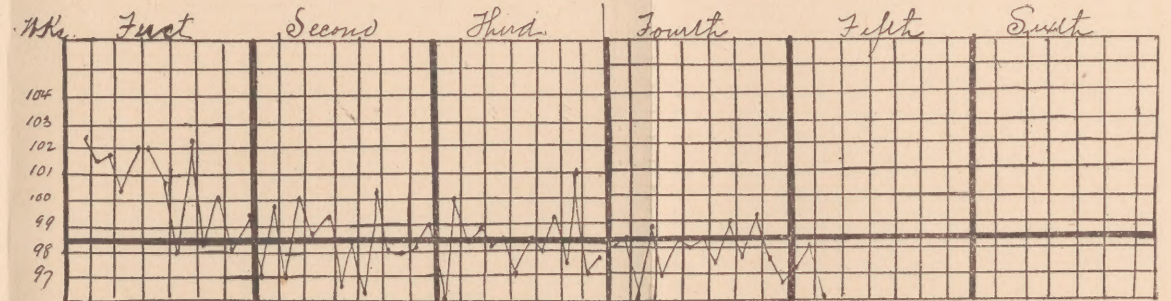 Wks. First Second Third Fourth Fifth Sixth
104
103
102
101
100
99
98
97